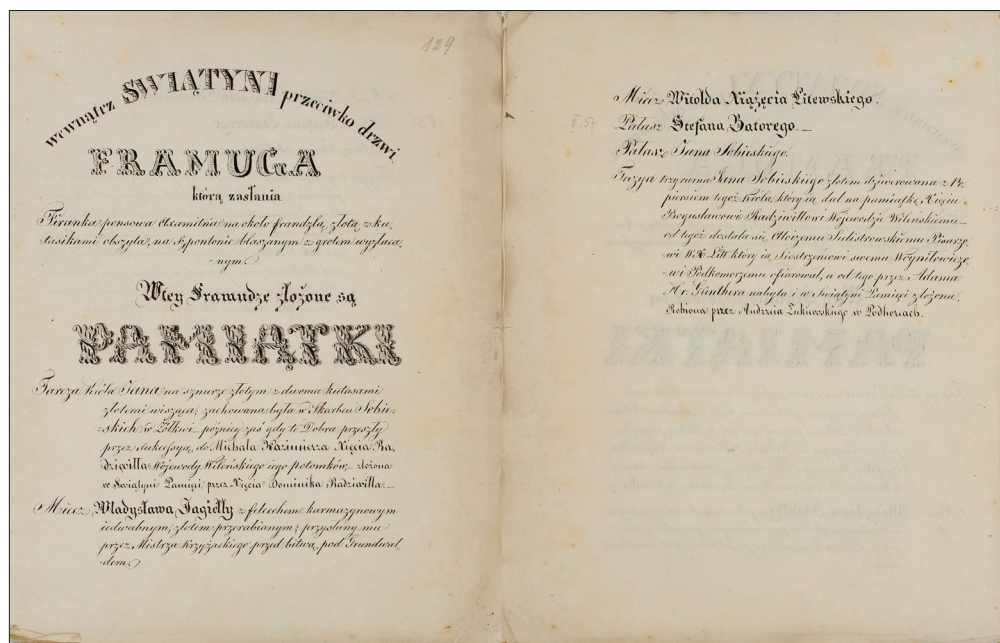 129
wewnątrz SWIĄTYNI przeciwko drzwi
FRAMUGA
którą zasłania
Firanka ponsowa Axamitna na około frandzlą złotą z ku,
tasikami obszyta, na Szpontonie blaszanym z grotem wyzłaca,
-nym.
Wtey Framudze złożone są
PAMIĄTKI
Tarcza Króla Jana na sznurze złotym z dwoma kutasami
złotemi wisząca; zachowana była w Skarbcu Sobie,
skich w Żółkwi – pózniey zaś gdy te Dobra przeszły
przez sukcessyą, do Michała Kaźimierza Xięcia Ra,
dziwiłła Wojewody Wileńskiego iego potomków, – złożona
w Świątyni Pamięci przez Xięcia Dominika Radziwiłła. –
Miecz Władysława Jagiełły z felcechem karmazynowym
iedwabnym, złotem przerabianym; przysłany mu
przez Mistrza Krzyżackiego przed bitwą pod Grunwal,
-dem.
Miecz Witolda Xiążęcia Litewskiego.
Pałasz Stefana Batorego. –
Pałasz Jana Sobieskiego.
Fuzya trzyrurna Jana Sobieskiego złotem dziwerowana z Po,
piersiem tegoż Króla, który ią dał na pamiątkę Xięciu
Bogusławowi Radziwiłłowi Wojewodzie Wileńskiemu –
od tegoż dostała się Aloizemu Sulistrowskiemu Pisarzo,
wi W.X. Litt: który ią Siostrzeńcowi swemu Woyniłowiczo,
-wi Podkomorzemu ofiarował, a od tego przez Adama
Hr. Günthera nabyta i w Świątyni Pamięci złożona.
Robiona przez Andrzeia Łukawskiego w Podhorcach.